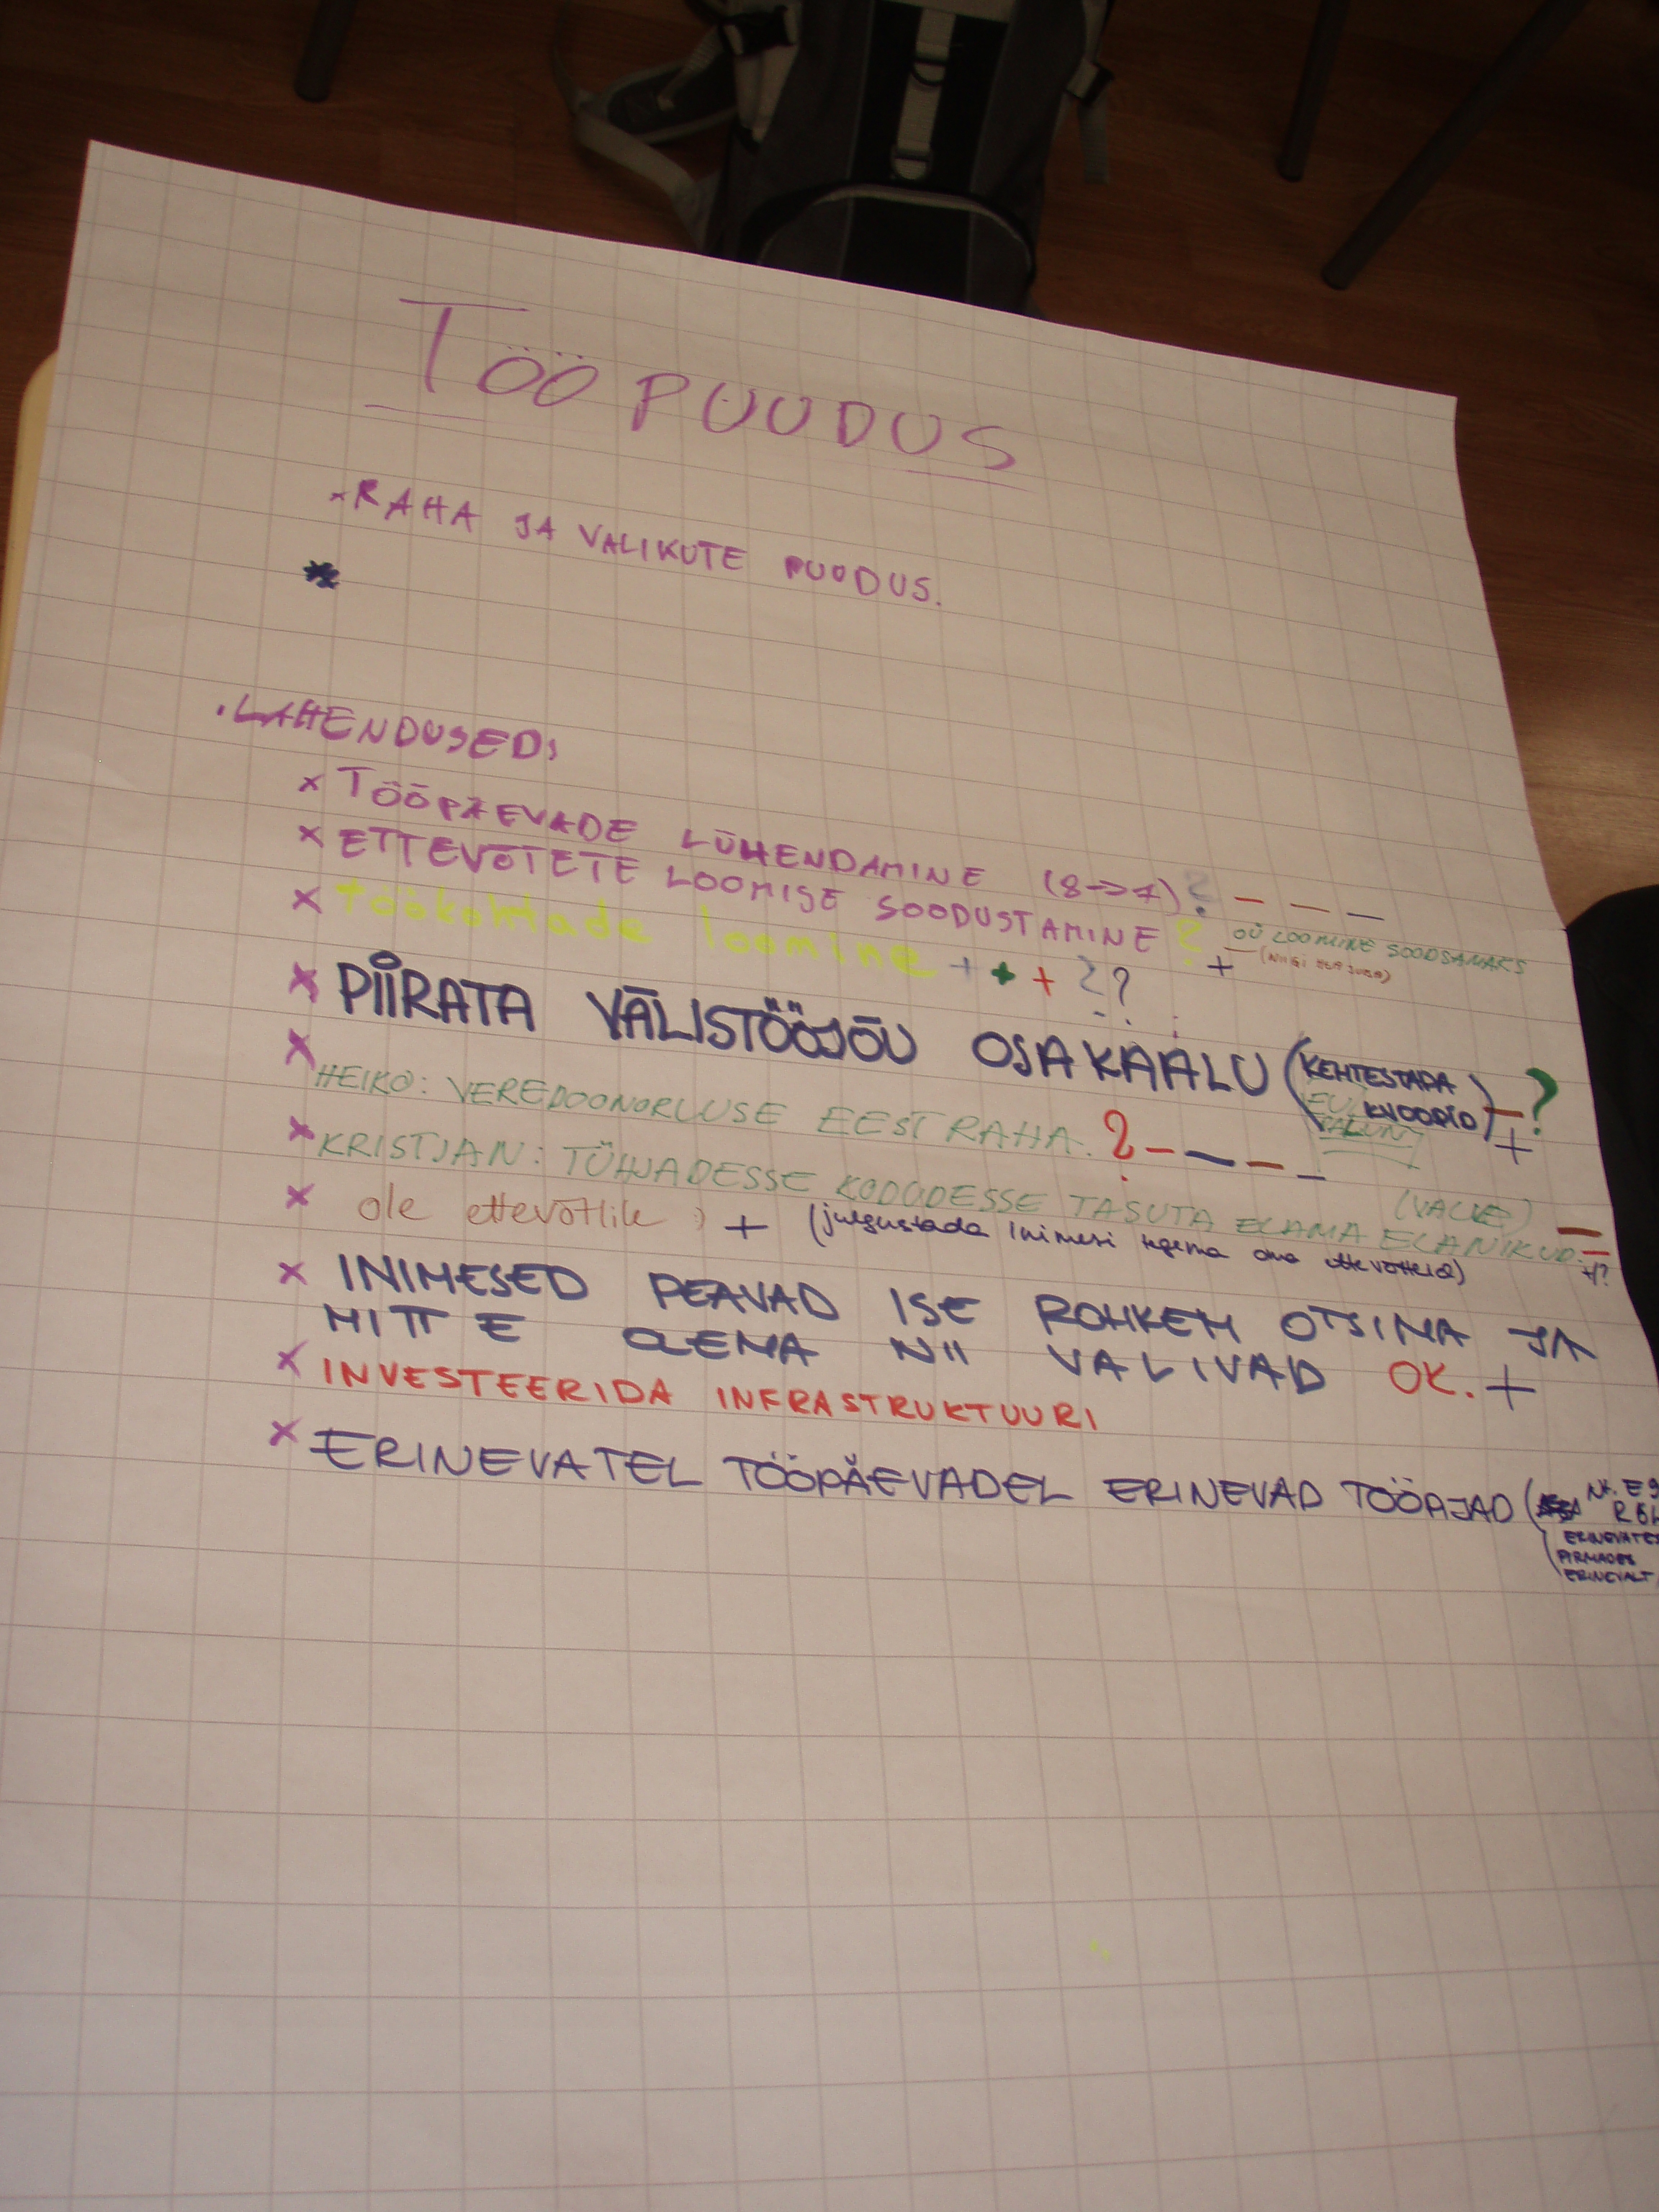 TÖÖPUUDUS
× RAHA JA VALIKUTE PUUDUS.
*
· LAHENDUSED:
× TÖÖPÄEVADE LÜHENDAMINE (8->7)? – – –
× ETTEVÕTETE LOOMISE SOODUSTAMINE ? OÜ LOOMINE SOODSAMAKS
+ – (NIIGI
× töökohtade loomine + + + ? ?
× PIIRATA VÄLISTÖÖJÕU OSAKAALU (KEHTESTADA KVOODID) – ? +
× HEIKO: VEREDOONORLUSE EEST RAHA. ? – – – –
× KRISTJAN: TÜHJADESSE KODUDESSE TASUTA ELAMA ELANIKUD. (VALLE) – – +?
× ole ettevõtlik :) + (julgustada inimesi tegema oma ettevõtteid)
× INIMESED PEAVAD ISE ROHKEM OTSIMA JA
MITTE OLEMA NII VALIVAD OK. +
× INVESTEERIDA INFRASTRUKTUURI
× ERINEVATEL TÖÖPÄEVADEL ERINEVAD TÖÖAJAD (NT. E 9
ERINEVATES
FIRMADES
ERINEVALT